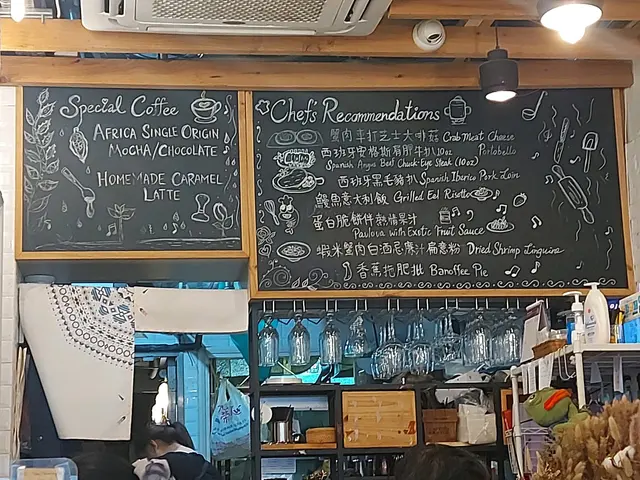 Special Coffee
AFRICA SINGLE ORIGIN
MOCHA/CHOCOLATE
HOMEMADE CARAMEL
LATTE
Chef's Recommendations
蟹肉車打芝士大啡菇 Crab Meat Cheese
Portobello
西班牙安格斯肩胛牛扒10oz
Spanish Angus Beef Chuck Eye Steak (10oz)
西班牙黑毛豬扒 Spanish Iberico Pork Loin
鰻魚意大利飯 Grilled Eel Risotto
蛋白脆餅伴熱情果汁
Pavlova with Exotic Fruit Sauce
蝦米蟹肉白酒忌廉汁扁意粉 Dried Shrimp Linguine
香蕉拖肥批 Banoffee Pie